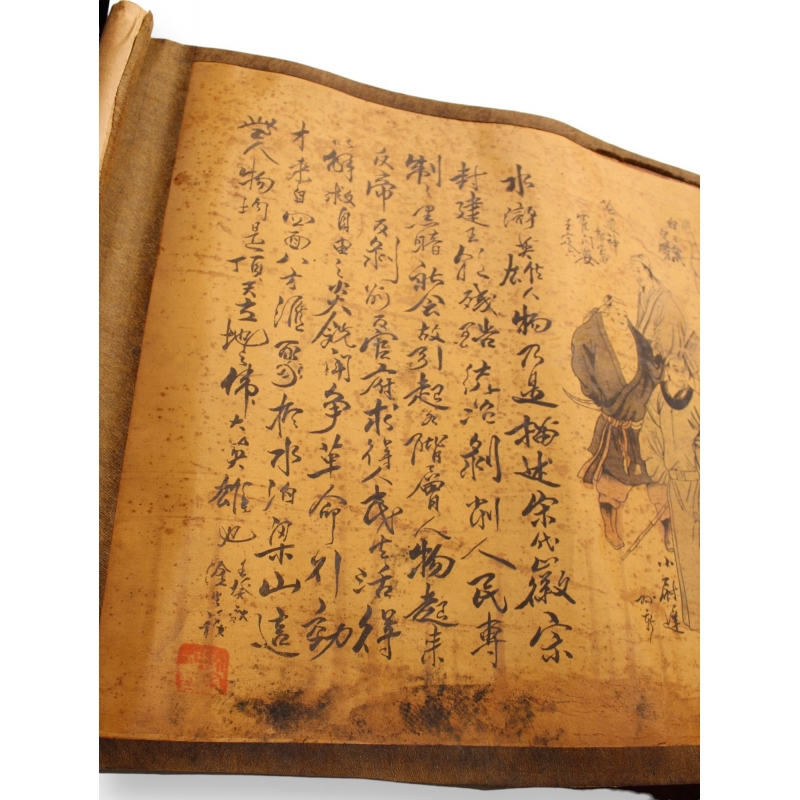 水滸英雄人物乃是描述宋代徽宗
封建王朝殘酷統治剝削人民專
制之黑暗社会故引起各階層人物起来
反帝反剝削反官府求得人民生活得
以解救自由之炎鋭開争革命行動
才来自四面八方滙聚於水泊梁山這
些人物均是頂天立地之偉大英雄也
小尉遲
孫新